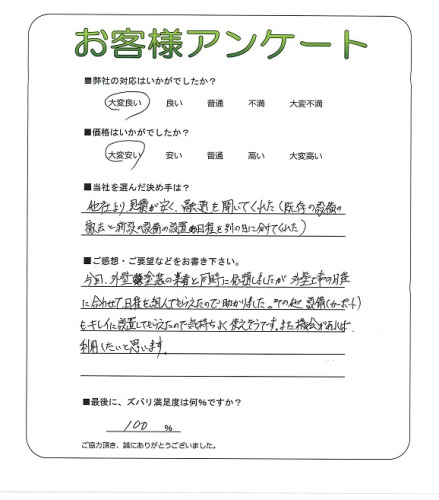 お客様アンケート
■弊社の対応はいかがでしたか？
大変良い 良い 普通 不満 大変不満
■価格はいかがでしたか？
大変安い 安い 普通 高い 大変高い
■当社を選んだ決め手は？
他社より見積が安く、融通を聞いてくれた（既存の設備の
撤去と新設の設備の設置の日程を別の日に分けてくれた）
■ご感想・ご要望などをお書き下さい。
今回、外壁塗装の業者と同時に依頼しましたが 外壁工事の日程
に合わせて日程を組んでもらえたので助かりました。その他 設備（カーポート）
もキレイに設置してもらえたので気持ちよく使えそうです。また機会があれば
利用したいと思います。
■最後に、ズバリ満足度は何％ですか？
100 ％
ご協力頂き、誠にありがとうございました。